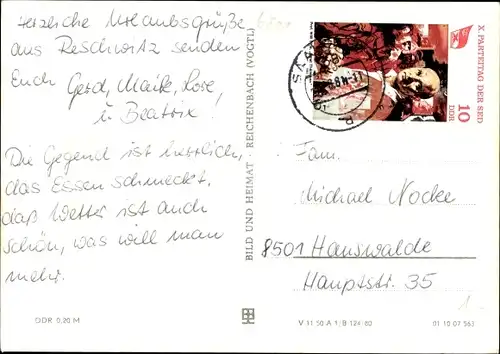 Herzliche Urlaubsgrüße
aus Reschwitz senden
Euch Gerd, Maike, Rose,
u. Beatrix!
Die Gegend ist herrlich,
das Essen schmeckt,
daß Wetter ist auch
schön, was will man
mehr.
DDR 0,20 M
BILD UND HEIMAT · REICHENBACH (VOGTL)
X. PARTEITAG DER SED
10
DDR
Fam.
Michael Nocke
8501 Hauswalde
Hauptstr. 35
V 11 50 A 1/B 124/80
01 10 07 563